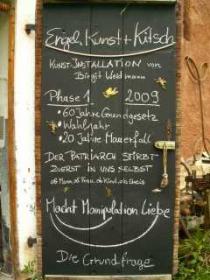 Engel, Kunst + Kitsch
KUNST-INSTALLATION von
Birgit Weidmann
Phase 1 2009
• 60 Jahre Grundgesetz
• Wahljahr
• 20 Jahre Mauerfall
DER PATRIARCH STIRBT
ZUERST IN UNS SELBST
ob Mann, ob Frau, ob Kind, ob Greis
Macht Manipulation Liebe
Die Grundfrage